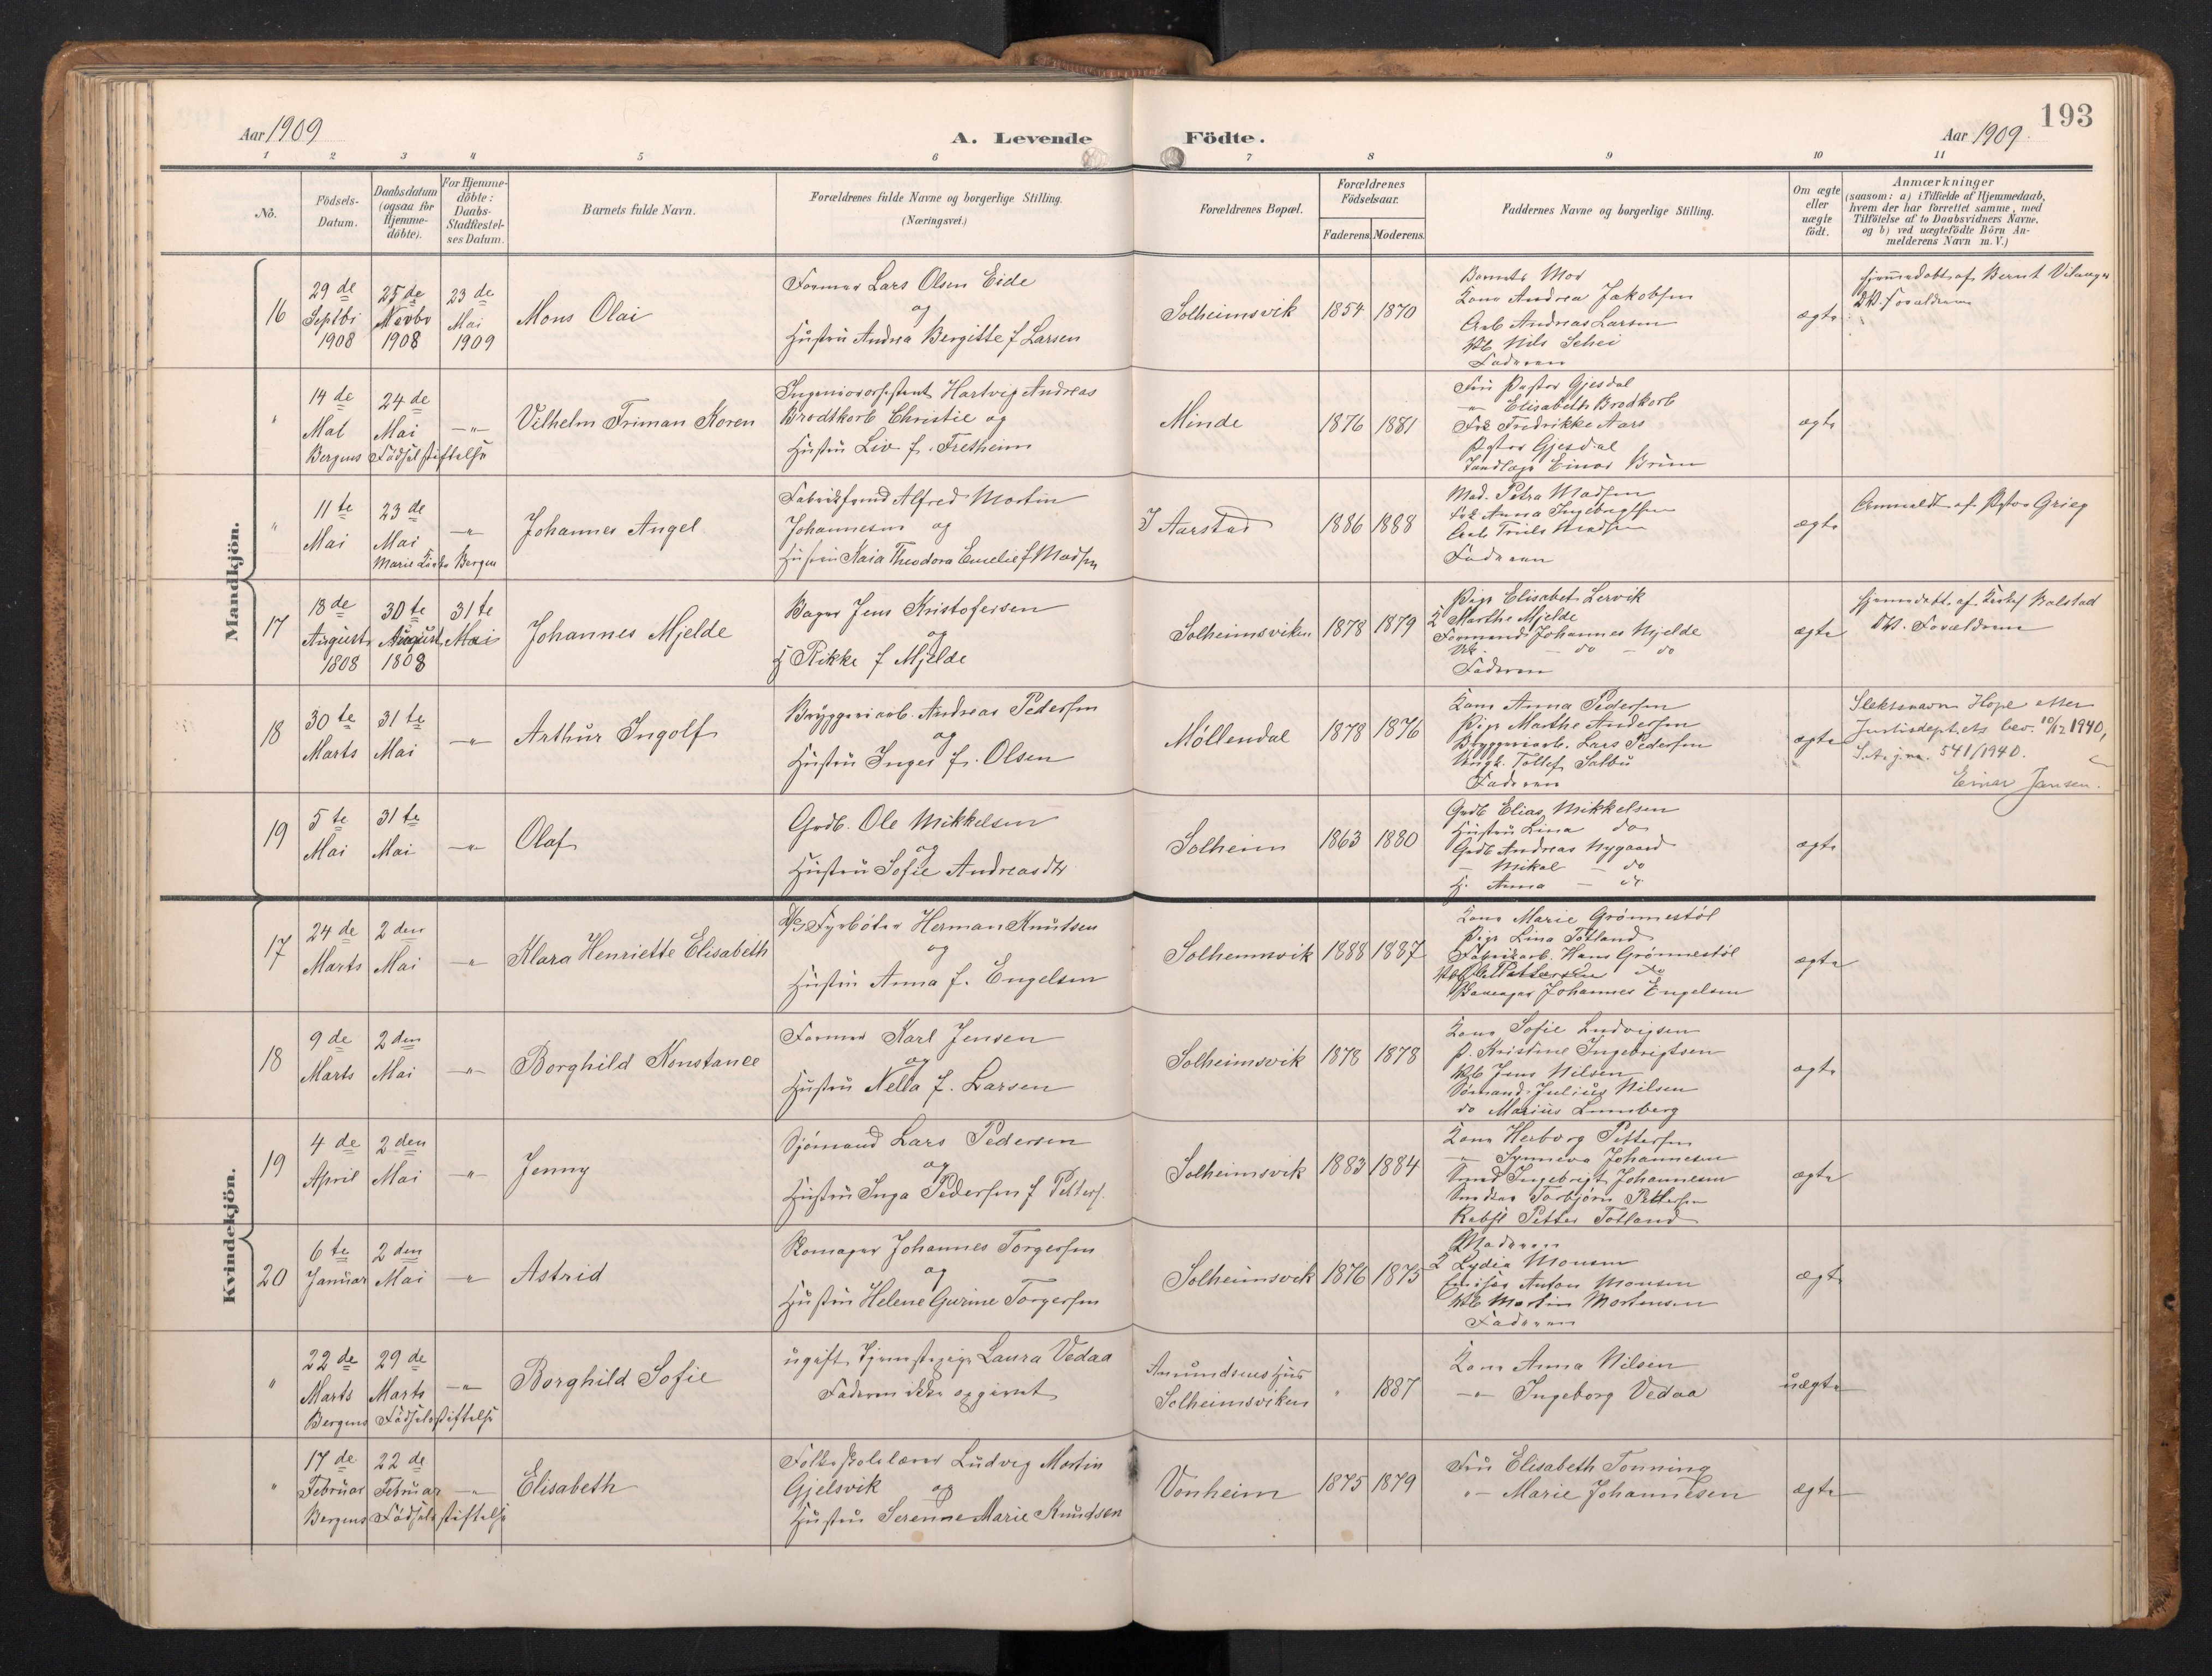 193
Aar 1909
A. Levende Födte.
Aar 1909
1 2 3 4 5 6 7 8 9 10 11
No.
Födsels-Datum.
Daabsdatum (ogsaa for Hjemme-döbte).
For Hjemme-döbte: Daabs-Stadfæstel-ses Datum.
Barnets fulde Navn.
Forældrenes fulde Navne og borgerlige Stilling.
(Næringsvei.)
Forældrenes Bopæl.
Forældrenes Födselsaar.
Faderens. Moderens.
Faddernes Navne og borgerlige Stilling.
Om ægte eller uægte födt.
Anmærkninger
(saasom: a) i Tilfælde af Hjemmedaab,
hvem der har forrettet samme, med
Tilföielse af to Daabsvidners Navne,
og b) ved uægtefödte Börn An-
melderens Navn m. V.)
Mandkjön.
16
29de Septbr 1908
25de Novbr 1908
23de Mai 1909
Mons Olai
Former Lars Olsen Eide
og
Hustru Andrea Bergitte f Larsen
Solheimsvik
1854 1870
Barnets Mor
Kone Andrea Jakobsen
Arb Andreas Larsen
Nils Schei
Faderen
ægte
Hjemmedøbt af Bernt
DV. Forældrene
"
14de Mai
24de Mai
-"-
Bergens Födselsstiftelse
Vilhelm Friman Koren
Ingeniørassistent Hartvig Andreas
Brodtkorb Christie og
Hustru Liv f. Fretheim
Minde
1876 1881
Fru Pastor Gjesdal
-"- Elisabeth Brodkorb
Frk Fredrikke Aars
Pastor Gjesdal
Tandlæge Einar Brun
ægte
"
11te Mai
23de Mai
-"-
Marie Kirke Bergen
Johannes Angel
Fabrikformd Alfred Martin
Johannesen og
Hustru Kaia Theodora Emelie f Madsen
I Aarstad
1886 1888
Mad. Petra Madsen
Frk Anna Ingebrigtsen
Arb Truls Madsen
Faderen
ægte
Anmeldt af Pastor Grieg
17
18de August 1808
30te August 1808
31te Mai
Johannes Mjelde
Bager Jens Kristofersen
og
H Rikke f Mjelde
Solheimsviken
1878 1879
Pige Elisabet Lervik
K Marthe Mjelde
Formand Johannes Mjelde
- do - do
Faderen
ægte
Hjemmedøbt af Balstad
DV. Forældrene
18
30te Marts
31te Mai
-"-
Arthur Ingolf
Bryggeriarb. Andreas Pedersen
og
Hustru Inger f. Olsen
Møllendal
1878 1876
Kone Anna Pedersen
Pige Marthe Andersen
Bryggeriarb. Lars Pedersen
Ungk. Tollef Salbu
Faderen
ægte
Slektsnavn Hope etter
Justisdept.ets bev. 10/12 1940,
S.A. j.nr. 541/1940.
Einar Jansen.
19
5te Mai
31te Mai
-"-
Olaf
Grdb. Ole Mikkelsen
og
Hustru Sofie Andreasdtr
Solheim
1863 1880
Grdb Elias Mikkelsen
Hustru Lina do
Grdb Andreas Nygaard
- Mikal - do
H. Anna - do
ægte
Kvindekjön.
17
24de Marts
2den Mai
-"-
Klara Henriette Elisabeth
Fyrbøter Herman Knutsen
og
Hustru Anna f. Engelsen
Solheimsvik
1888 1887
Kone Marie Grønnestøl
Pige Lina Totland
Fabrikarb. Hans Grønnestøl
Johannes Engelsen
ægte
18
9de Marts
2den Mai
-"-
Borghild Konstance
Former Karl Jensen
og
Hustru Nella f. Larsen
Solheimsvik
1878 1878
Kone Sofie Ludvigsen
P. Kristine Ingebrigtsen
Jens Nilsen
Sømand Julius Nilsen
do Marius Lunnberg
ægte
19
4de April
2den Mai
-"-
Jenny
Sjømand Lars Pedersen
og
Hustru Inga Pedersen f Petters.
Solheimsvik
1883 1884
Kone Herborg Pettersen
-"- Synneva Johannesen
Smed Ingebrigt Johannesen
Torbjørn Pettersen
Petter Totland
ægte
20
6te Januar
2den Mai
-"-
Astrid
Johannes Torgersen
og
Hustru Helene Gurine Torgersen
Solheimsvik
1876 1875
Moderen
K Lydia Monsen
Anton Monsen
Martin Mortensen
Faderen
ægte
"
22de Marts
29de Marts
-"-
Bergens Födselsstiftelse
Borghild Sofie
ugift Tjenestepige Laura Vedaa
Faderen ikke opgivet
Amundsens Hus
Solheimsviken
" 1887
Kone Anna Nilsen
-"- Ingeborg Vedaa
uægte
"
17de Februar
22de Februar
-"-
Bergens Födselsstiftelse
Elisabeth
Folkeskolelærer Ludvig Martin
Gjelsvik og
Hustru Serenne Marie Knudsen
Vonheim
1875 1879
Fru Elisabeth Tonning
"- Marie Johannesen
ægte